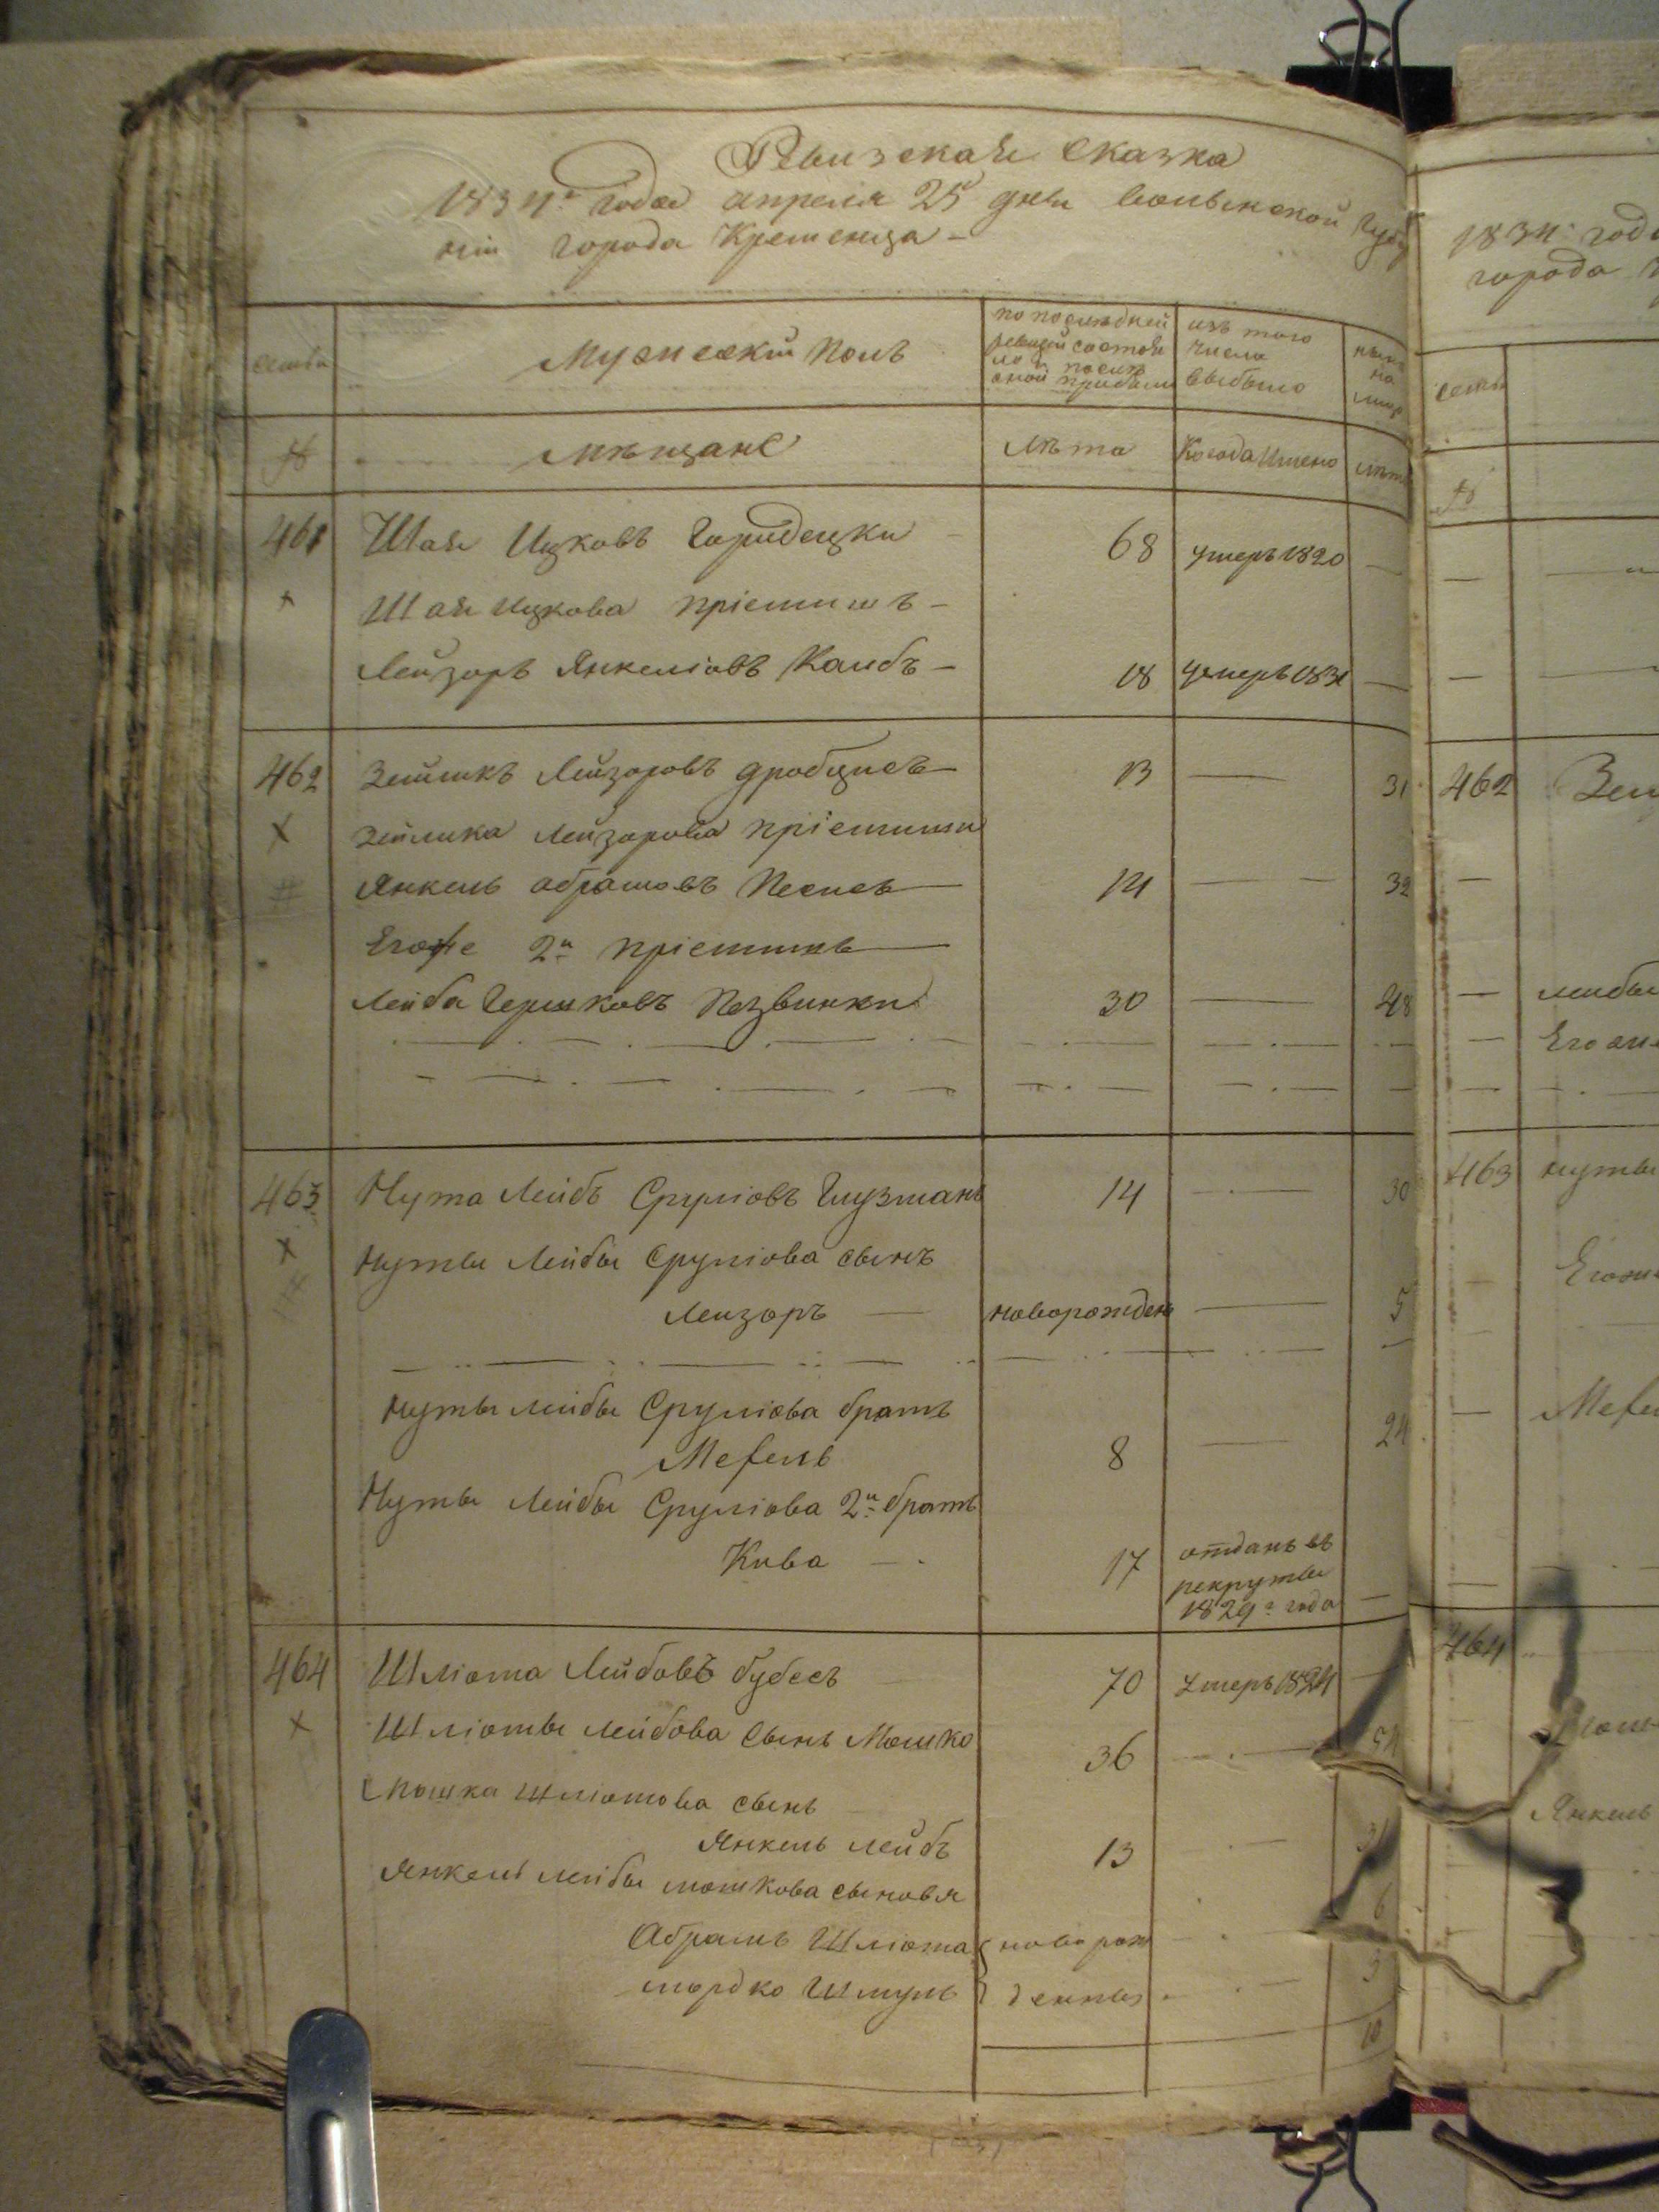 Ревизская Сказка
1834г. года апреля 25 дня Волынской Губ
нiи города Кременца
семьи
Мужескiй Полъ
по последней
ревизiи состоя
ло и после
оной прибыли
изъ того
числа
выбыло
ныне
на
лицо
№
мѣщане
Лѣта
Когода Имено
лѣта
461
Шая Ицковъ Городецки
68
умеръ 1820
Шаи Ицкова прiемишъ
Лейзоръ Янкелiовъ Калбъ
18
умеръ 1831
462
Зейликъ Лейзоровъ дробцисъ
13
31
Зейлика Лейзорова прiемиши
Янкель абрамовъ Песисъ
14
32
Егоже 2й прiемишь
Лейба Гершковъ Позвинки
30
48
463
Нута Лейбъ Срулiовъ Глузманъ
14
30
Нуты Лейбы Срулiова сынъ
Лейзоръ
новорожден
5
Нуты лейбы Срулiова братъ
Мехель
8
24
Нуты Лейбы Срулiова 2й братъ
Кива
17
отданъ въ
рекруты
1829г года
464
Шлiома Лейбовъ бубесъ
70
умеръ 1824
Шлiомы лейбова сынъ Мошко
36
54
Мошка шлiомова сынъ
Янкель лейбъ
13
31
Янкеля лейбы мошкова сыновя
Абрамъ Шлiома
новорож
6
мордко Шмуль
денныя
3
10
1834г. года
города
семьи
№
462
Зей
лейбы
Егоже
463
нуты
Егоже
Мехе
464
Мош
Янкель